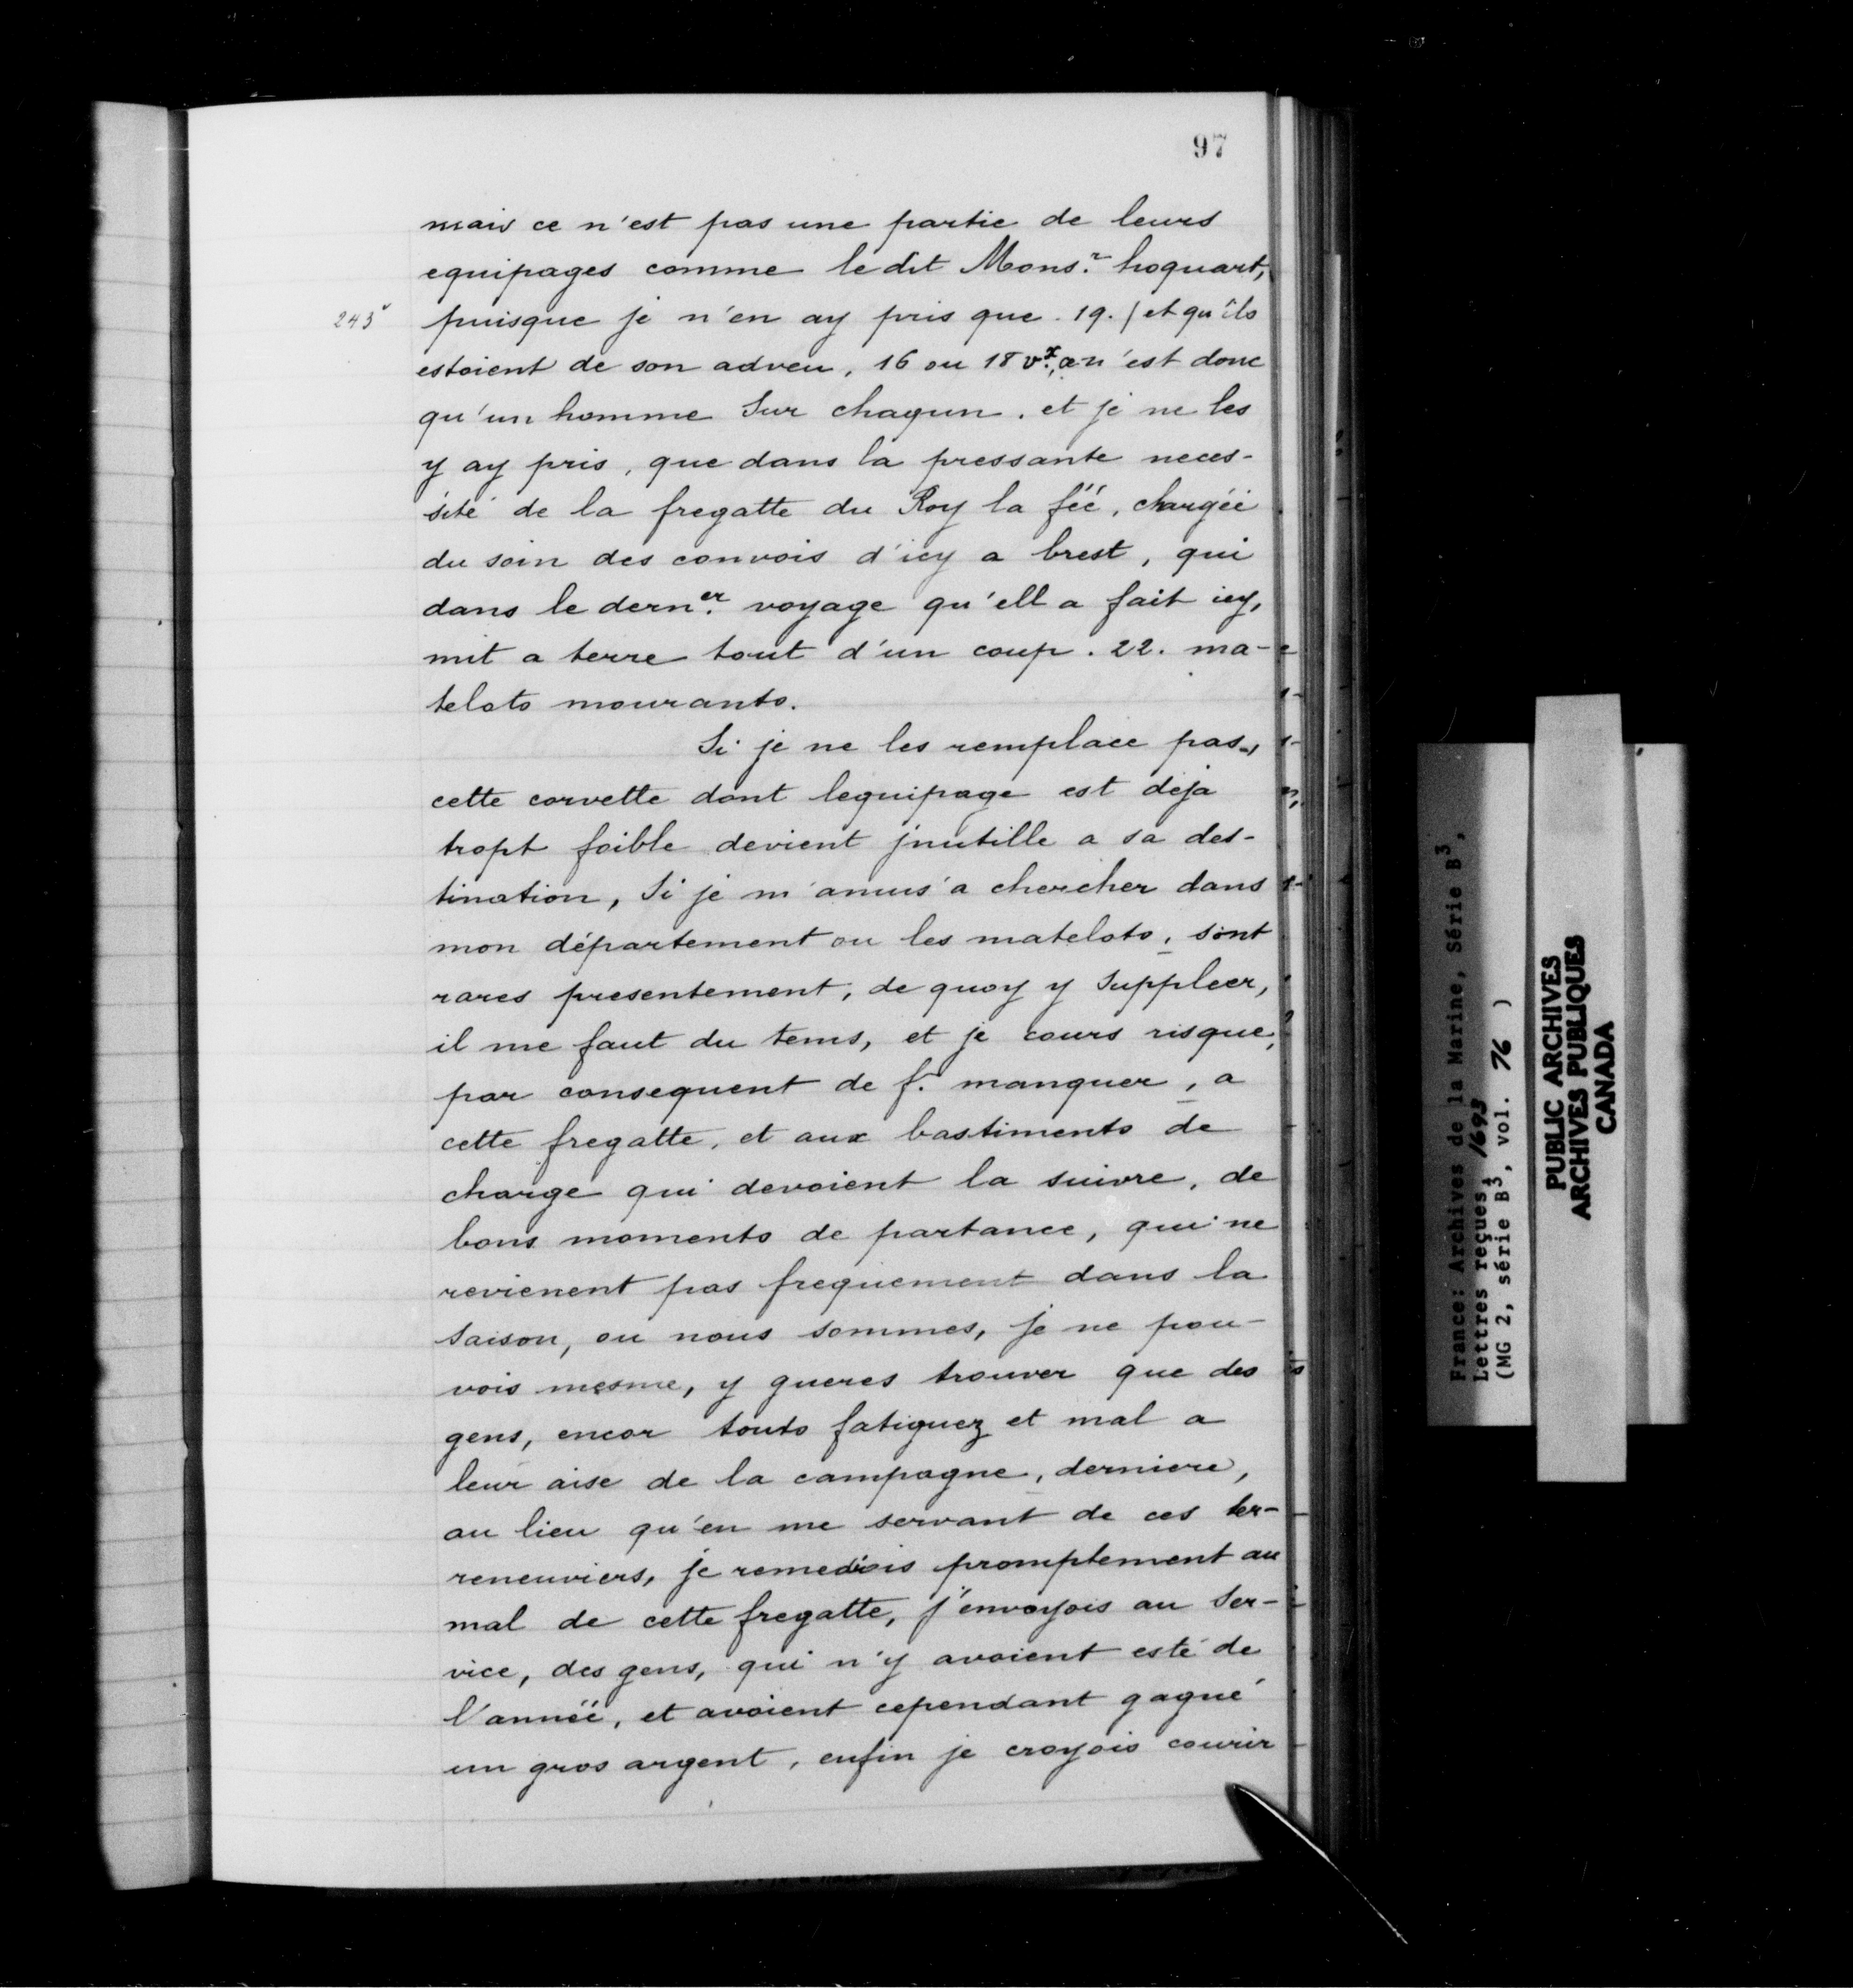 97
mais ce n'est pas une partie de leurs
equipages comme ledit Mons.r hoquart,
243v
puisque je n'en ay pris que . 19. / et qu'ils
estoient de son adveu, 16 ou 18 v.x, ce n'est donc
qu'un homme Sur chaqun, et je ne les
y ay pris, que dans la pressante neces-
sité de la fregatte du Roy la féé, chargéé
du soin des convois d'icy a brest, qui
dans le dern.er voyage qu'ell a fait icy,
mit a terre tout d'un coup . 22. ma-
telots mourants.
Si je ne les remplace pas,
cette corvette dont lequipage est deja
tropt foible devient jnutille a sa des-
tination, Si je m'amus'a chercher dans
mon département ou les matelots, sont
rares presentement, de quoy y Suppleer,
il me faut du tems, et je cours risque,
par consequent de f. manquer, a
cette fregatte, et aux bastiments de
charge qui devoient la suivre, de
bons moments de partance, qui ne
revienent pas frequement dans la
saison, ou nous sommes, je ne pou-
vois mesme, y gueres trouver que des
gens, encor touts fatiguez et mal a
leur aise de la campagne, derniere,
au lieu qu'en me servant de ces ter-
reneuviers, je remediois promptement au
mal de cette fregatte, j'envoyois au Ser-
vice, des gens, qui n'y avoient esté de
l'annéé, et avoient cependant gagné
un gros argent, enfin je croyois courir
France: Archives de la Marine, Série B3,
Lettres reçues, 1693
(MG 2, série B3, vol. 76 )
PUBLIC ARCHIVES
ARCHIVES PUBLIQUES
CANADA